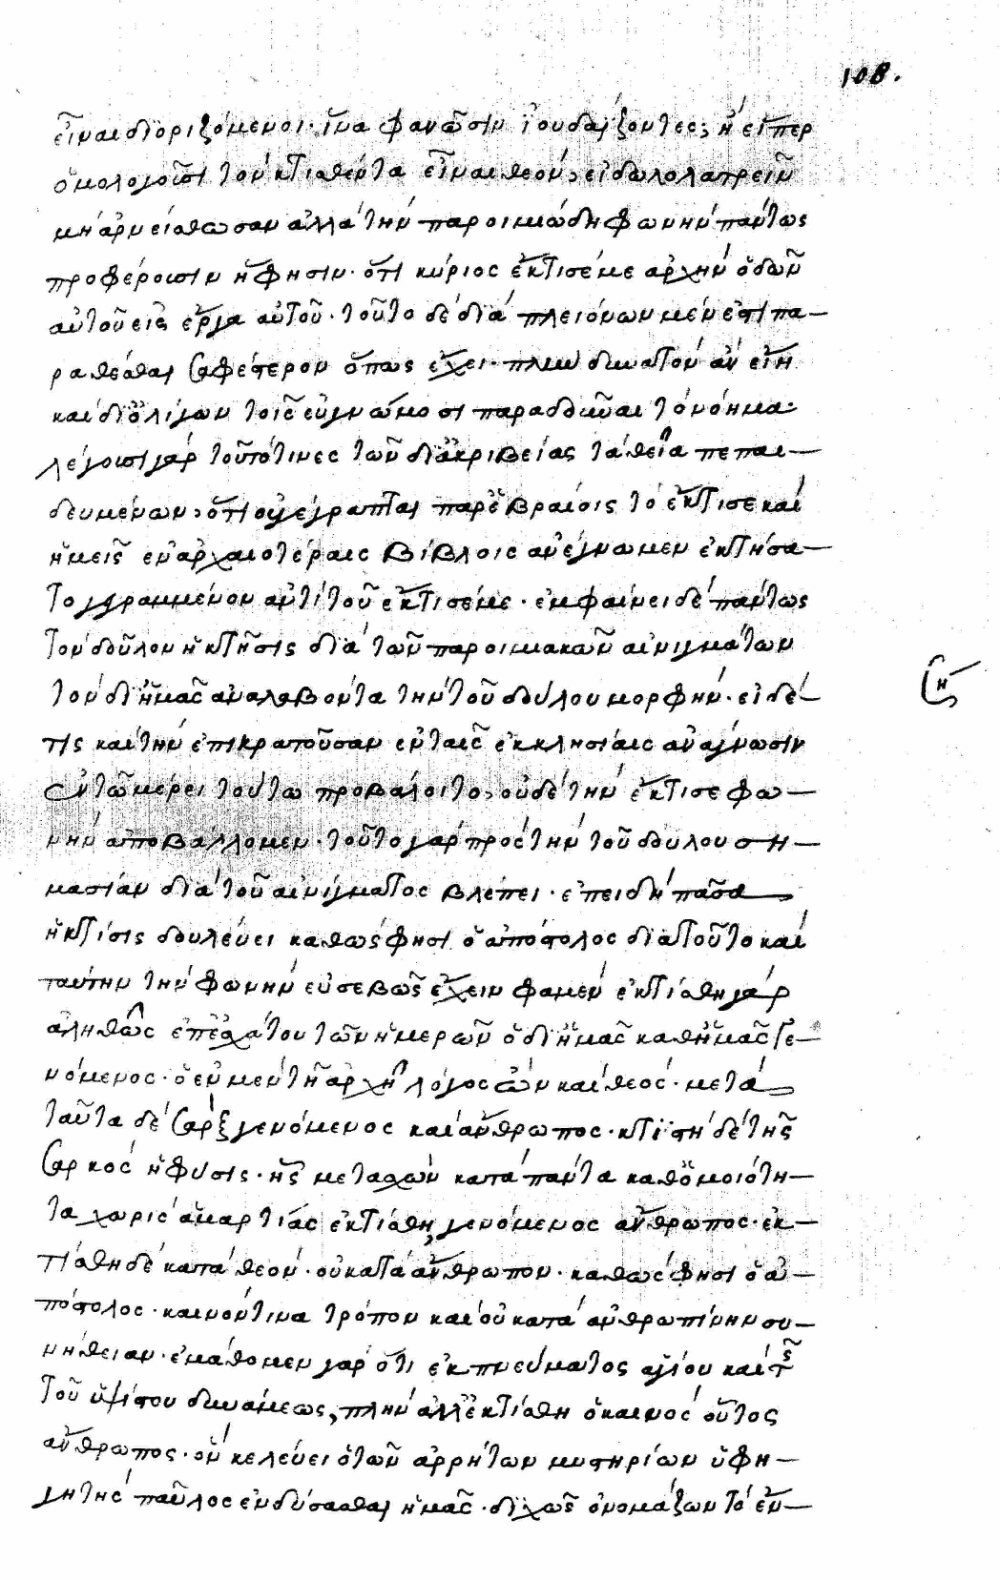 108.
εἶναι διοριζόμενοι· ἵνα φανῶσιν ἰουδαΐζοντες, ἢ εἴπερ
ὁμολογοῦσι τὸν κτισθέντα εἶναι θεὸν, εἰδωλολατρεῖν
μὴ ἀρνείσθωσαν ἀλλὰ τὴν παροιμιώδη φωνὴν πάντως
προφέρουσιν ἥ φησιν· ὅτι κύριος ἔκτισέ με ἀρχὴν ὁδῶν
αὐτοῦ εἰς ἔργα αὐτοῦ· τοῦτο δὲ διὰ πλειόνων μέν ἐστι πα–
ραθέσθαι σαφέστερον ὅπως ἔχει· πλὴν δυνατὸν ἂν εἴη
καὶ δι' ὀλίγων τοῖς εὐγνώμοσι παραδοῦναι τὸ νόημα·
λέγουσι γάρ τοῦτό τινες τῶν δι' ἀκριβείας τὰ θεῖα πεπαι–
δευμένων, ὅτι οὐ γέγραπται παρ' ἑβραίοις τὸ ἔκτισε καὶ
ἡμεῖς ἐν ἀρχαιοτέραις βίβλοις ἀνέγνωμεν ἐκτήσα–
το γεγραμμένον ἀντὶ τοῦ ἔκτισέ με· ἐμφαίνει δὲ πάντως
τὸν δοῦλον ἡ κτῆσις διὰ τῶν παροιμιακῶν αἰνιγμάτων
τὸν δι' ἡμᾶς ἀναλαβόντα τὴν τοῦ δούλου μορφήν· εἰ δέ–
τις καὶ τὴν ἐπικρατοῦσαν ἐν ταῖς ἐκκλησίαις ἀνάγνωσιν
ἐν τῷ μέρει τούτω προβάλοιτο, οὐδὲ τὴν ἔκτισε φω–
νὴν ἀποβάλλομεν· τοῦτο γὰρ πρὸς τὴν τοῦ δούλου ση–
μασίαν διὰ τοῦ αἰνίγματος βλέπει· ἐπειδὴ πᾶσα
ἡ κτίσις δουλεύει καθώς φησι ὁ ἀπόστολος διὰ τοῦτο καὶ
ταύτην τὴν φωνὴν εὐσεβῶς ἔχειν φαμὲν ἐκτίσθη γάρ
ἀληθῶς ἐπ' ἐσχάτου τῶν ἡμερῶν ὁ δι' ἡμᾶς καθ' ἡμᾶς γε–
νόμενος· ὁ ἐν μὲν τῇ ἀρχῇ λόγος ὢν καὶ θεός· μετὰ
ταῦτα δὲ σὰρξ γενόμενος καὶ ἄνθρωπος· κτιστὴ δὲ τῆς
σαρκὸς ἡ φύσις· ἧς μετασχὼν κατὰ πάντα καθ' ὁμοιότη–
τα χωρὶς ἁμαρτίας ἐκτίσθη γενόμενος ἄνθρωπος· ἐκ–
τίσθη δὲ κατὰ θεόν· οὐ κατὰ ἄνθρωπον· καθώς φησι ὁ ἀ–
πόστολος· καινόν τινα τρόπον καὶ οὐ κατὰ ἀνθρωπίνην συ–
νήθειαν· ἐμάθομεν γὰρ ὅτι ἐκ πνεύματος ἁγίου καὶ τῆς
τοῦ ὑψίστου δυνάμεως, πλὴν ἀλλ' ἐκτίσθη ὁ καινὸς οὗτος
ἄνθρωπος· ὃν κελεύει ὁ τῶν ἀρρήτων μυστηρίων ὑφη–
γητὴς παῦλος ἐνδύσασθαι ἡμᾶς· διχῶς ὀνομάζων τὸ ἔν–